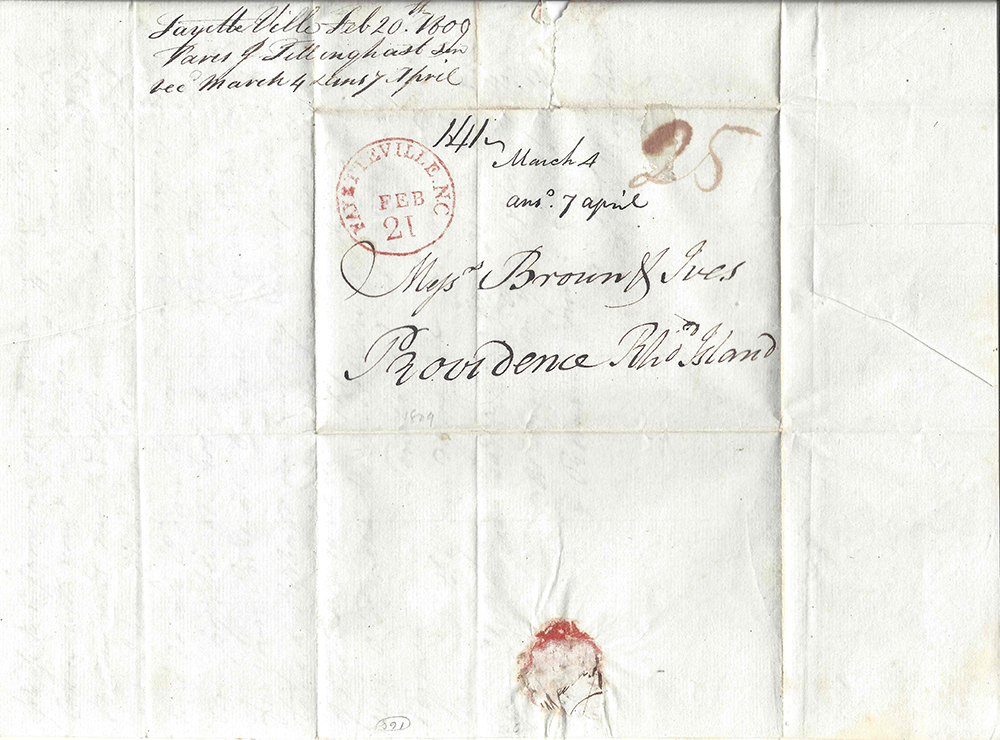 Fayette Ville Feb 20th. 1809
Paris J Tillinghast Sen
recd March 4 & ans 7 April
141
March 4
anso. 7 april
25
FAYETTEVILLE. NC
FEB
21
Messrs Brown & Ives
Providence Rhd Island
1809
521